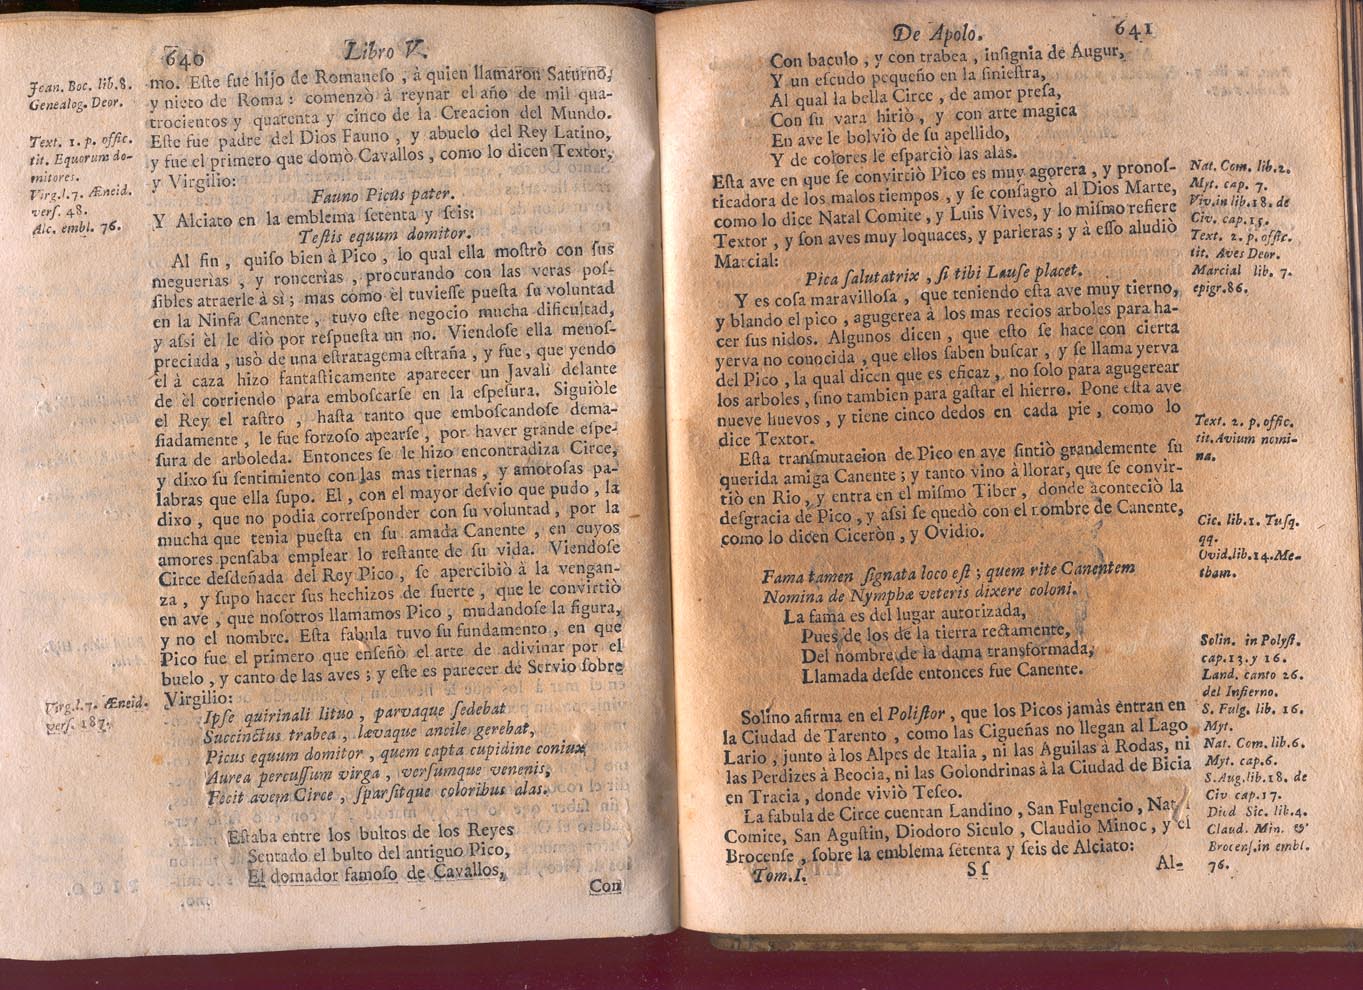 640 Libro V.
mo. Eſte fue hijo de Romaneſo, à quien llamaron Saturno,
y nieto de Roma: comenzò à reynar el año de mil qua-
trocientos y quarenta y cinco de la Creacion del Mundo.
Eſte fue padre del Dios Fauno, y abuelo del Rey Latino,
y fue el primero que domò Cavallos, como lo dicen Textor,
y Virgilio:
Fauno Picus pater.
Y Alciato en la emblema ſetenta y ſeis:
Teſtis equum domitor.
Al fin, quiſo bien à Pico, lo qual ella moſtrò con ſus
meguerìas, y roncerìas, procurando con las veras poſ-
ſibles atraerle à sì; mas como èl tuvieſſe pueſta ſu voluntad
en la Ninfa Canente, tuvo eſte negocio mucha dificultad,
y aſsi èl le diò por reſpueſta un no. Viendoſe ella menoſ-
preciada, usò de una eſtratagema eſtraña, y fue, que yendo
èl à caza hizo fantaſticamente aparecer un Javalì delante
de èl corriendo para emboſcarſe en la eſpeſura. Siguiòle
el Rey el raſtro, haſta tanto que emboſcandoſe dema-
ſiadamente, le fue forzoſo apearſe, por haver grande eſpe-
ſura de arboleda. Entonces ſe le hizo encontradiza Circe,
y dixo ſu ſentimiento con las mas tiernas, y amoroſas pa-
labras que ella ſupo. El, con el mayor deſvio que pudo, la
dixo, que no podia correſponder con ſu voluntad, por la
mucha que tenia pueſta en ſu amada Canente, en cuyos
amores penſaba emplear lo reſtante de ſu vida. Viendoſe
Circe deſdeñada del Rey Pico, ſe apercibiò à la vengan-
za, y ſupo hacer ſus hechizos de ſuerte, que le convirtiò
en ave, que noſotros llamamos Pico, mudandoſe la figura,
y no el nombre. Eſta fabula tuvo ſu fundamento, en que
Pico fue el primero que enſeñò el arte de adivinar por el
buelo, y canto de las aves; y eſte es parecer de Servio ſobre
Virgilio:
Ipſe quirinali lituo, parvaque ſedebat
Succinctus trabea, lævaque ancile gerebat,
Picus equum domitor, quem capta cupidine coniux,
Aurea percuſſum virga, verſumque venenis,
Fecit avem Circe, ſparſitque coloribus alas.
Eſtaba entre los bultos de los Reyes
Sentado el bulto del antiguo Pico,
El domador famoſo de Cavallos,
Con
Joan. Boc. lib. 8.
Genealog. Deor.
Text. 1. p. offic.
tit. Equorum do-
mitores.
Virg. l. 7. Æneid.
verſ. 48.
Alc. embl. 76.
Virg. l. 7. Æneid.
verſ. 187.
De Apolo. 641
Con baculo, y con trabea, inſignia de Augur,
Y un eſcudo pequeño en la ſinieſtra,
Al qual la bella Circe, de amor preſa,
Con ſu vara hiriò, y con arte magica
En ave le bolviò de ſu apellido,
Y de colores le eſparciò las alas.
Eſta ave en que ſe convirtiò Pico es muy agorera, y pronoſ-
ticadora de los malos tiempos, y ſe conſagrò al Dios Marte,
como lo dice Natal Comite, y Luis Vives, y lo miſmo refiere
Textor, y ſon aves muy loquaces, y parleras; y à eſſo aludiò
Marcial:
Pica ſalutatrix, ſi tibi Lauſe placet.
Y es coſa maravilloſa, que teniendo eſta ave muy tierno,
y blando el pico, agugerea à los mas recios arboles para ha-
cer ſus nidos. Algunos dicen, que eſto ſe hace con cierta
yerva no conocida, que ellos ſaben buſcar, y ſe llama yerva
del Pico, la qual dicen que es eficaz, no ſolo para agugerear
los arboles, ſino tambien para gaſtar el hierro. Pone eſta ave
nueve huevos, y tiene cinco dedos en cada pie, como lo
dice Textor.
Eſta tranſmutacion de Pico en ave ſintiò grandemente ſu
querida amiga Canente; y tanto vino à llorar, que ſe convir-
tiò en Rio, y entra en el miſmo Tiber, donde aconteciò la
deſgracia de Pico, y aſsi ſe quedò con el nombre de Canente,
como lo dicen Ciceròn, y Ovidio.
Fama tamen ſignata loco eſt; quem rite Canentem
Nomina de Nympha veteris dixere coloni.
La fama es del lugar autorizada,
Pues de los de la tierra rectamente,
Del nombre de la dama transformada,
Llamada deſde entonces fue Canente.
Solino afirma en el Poliſtor, que los Picos jamàs entran en
la Ciudad de Tarento, como las Cigueñas no llegan al Lago
Lario, junto à los Alpes de Italia, ni las Aguilas à Rodas, ni
las Perdizes à Beocia, ni las Golondrinas à la Ciudad de Bicia
en Tracia, donde viviò Teſeo.
La fabula de Circe cuentan Landino, San Fulgencio, Nat.
Comite, San Aguſtin, Diodoro Siculo, Claudio Minoc, y el
Brocenſe, ſobre la emblema ſetenta y ſeis de Alciato:
Tom. I. Sſ Al-
Nat. Com. lib. 2.
Myt. cap. 7.
Viv. in lib. 18. de
Civ. cap. 15.
Text. 2. p. offic.
tit. Aves Deor.
Marcial lib. 7.
epigr. 86.
Text. 2. p. offic.
tit. Avium nomi-
na.
Cic. lib. 1. Tuſq.
qq.
Ovid. lib. 14. Me-
tham.
Solin. in Polyſt.
cap. 13. y 16.
Land. canto 26.
del Infierno.
S. Fulg. lib. 16.
Myt.
Nat. Com. lib. 6.
Myt. cap. 6.
S. Aug. lib. 18. de
Civ cap. 17.
Diod Sic. lib. 4.
Claud. Min. &
Brocenſ. in embl.
76.